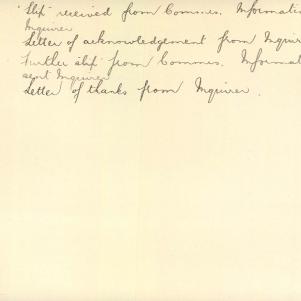 "Slip" received from Commrs. Informatio
Inquirer
Letter of acknowledgement from Inquir
Further slip from Commrs. Informat
sent Inquirer
Letter of thanks from Inquirer.